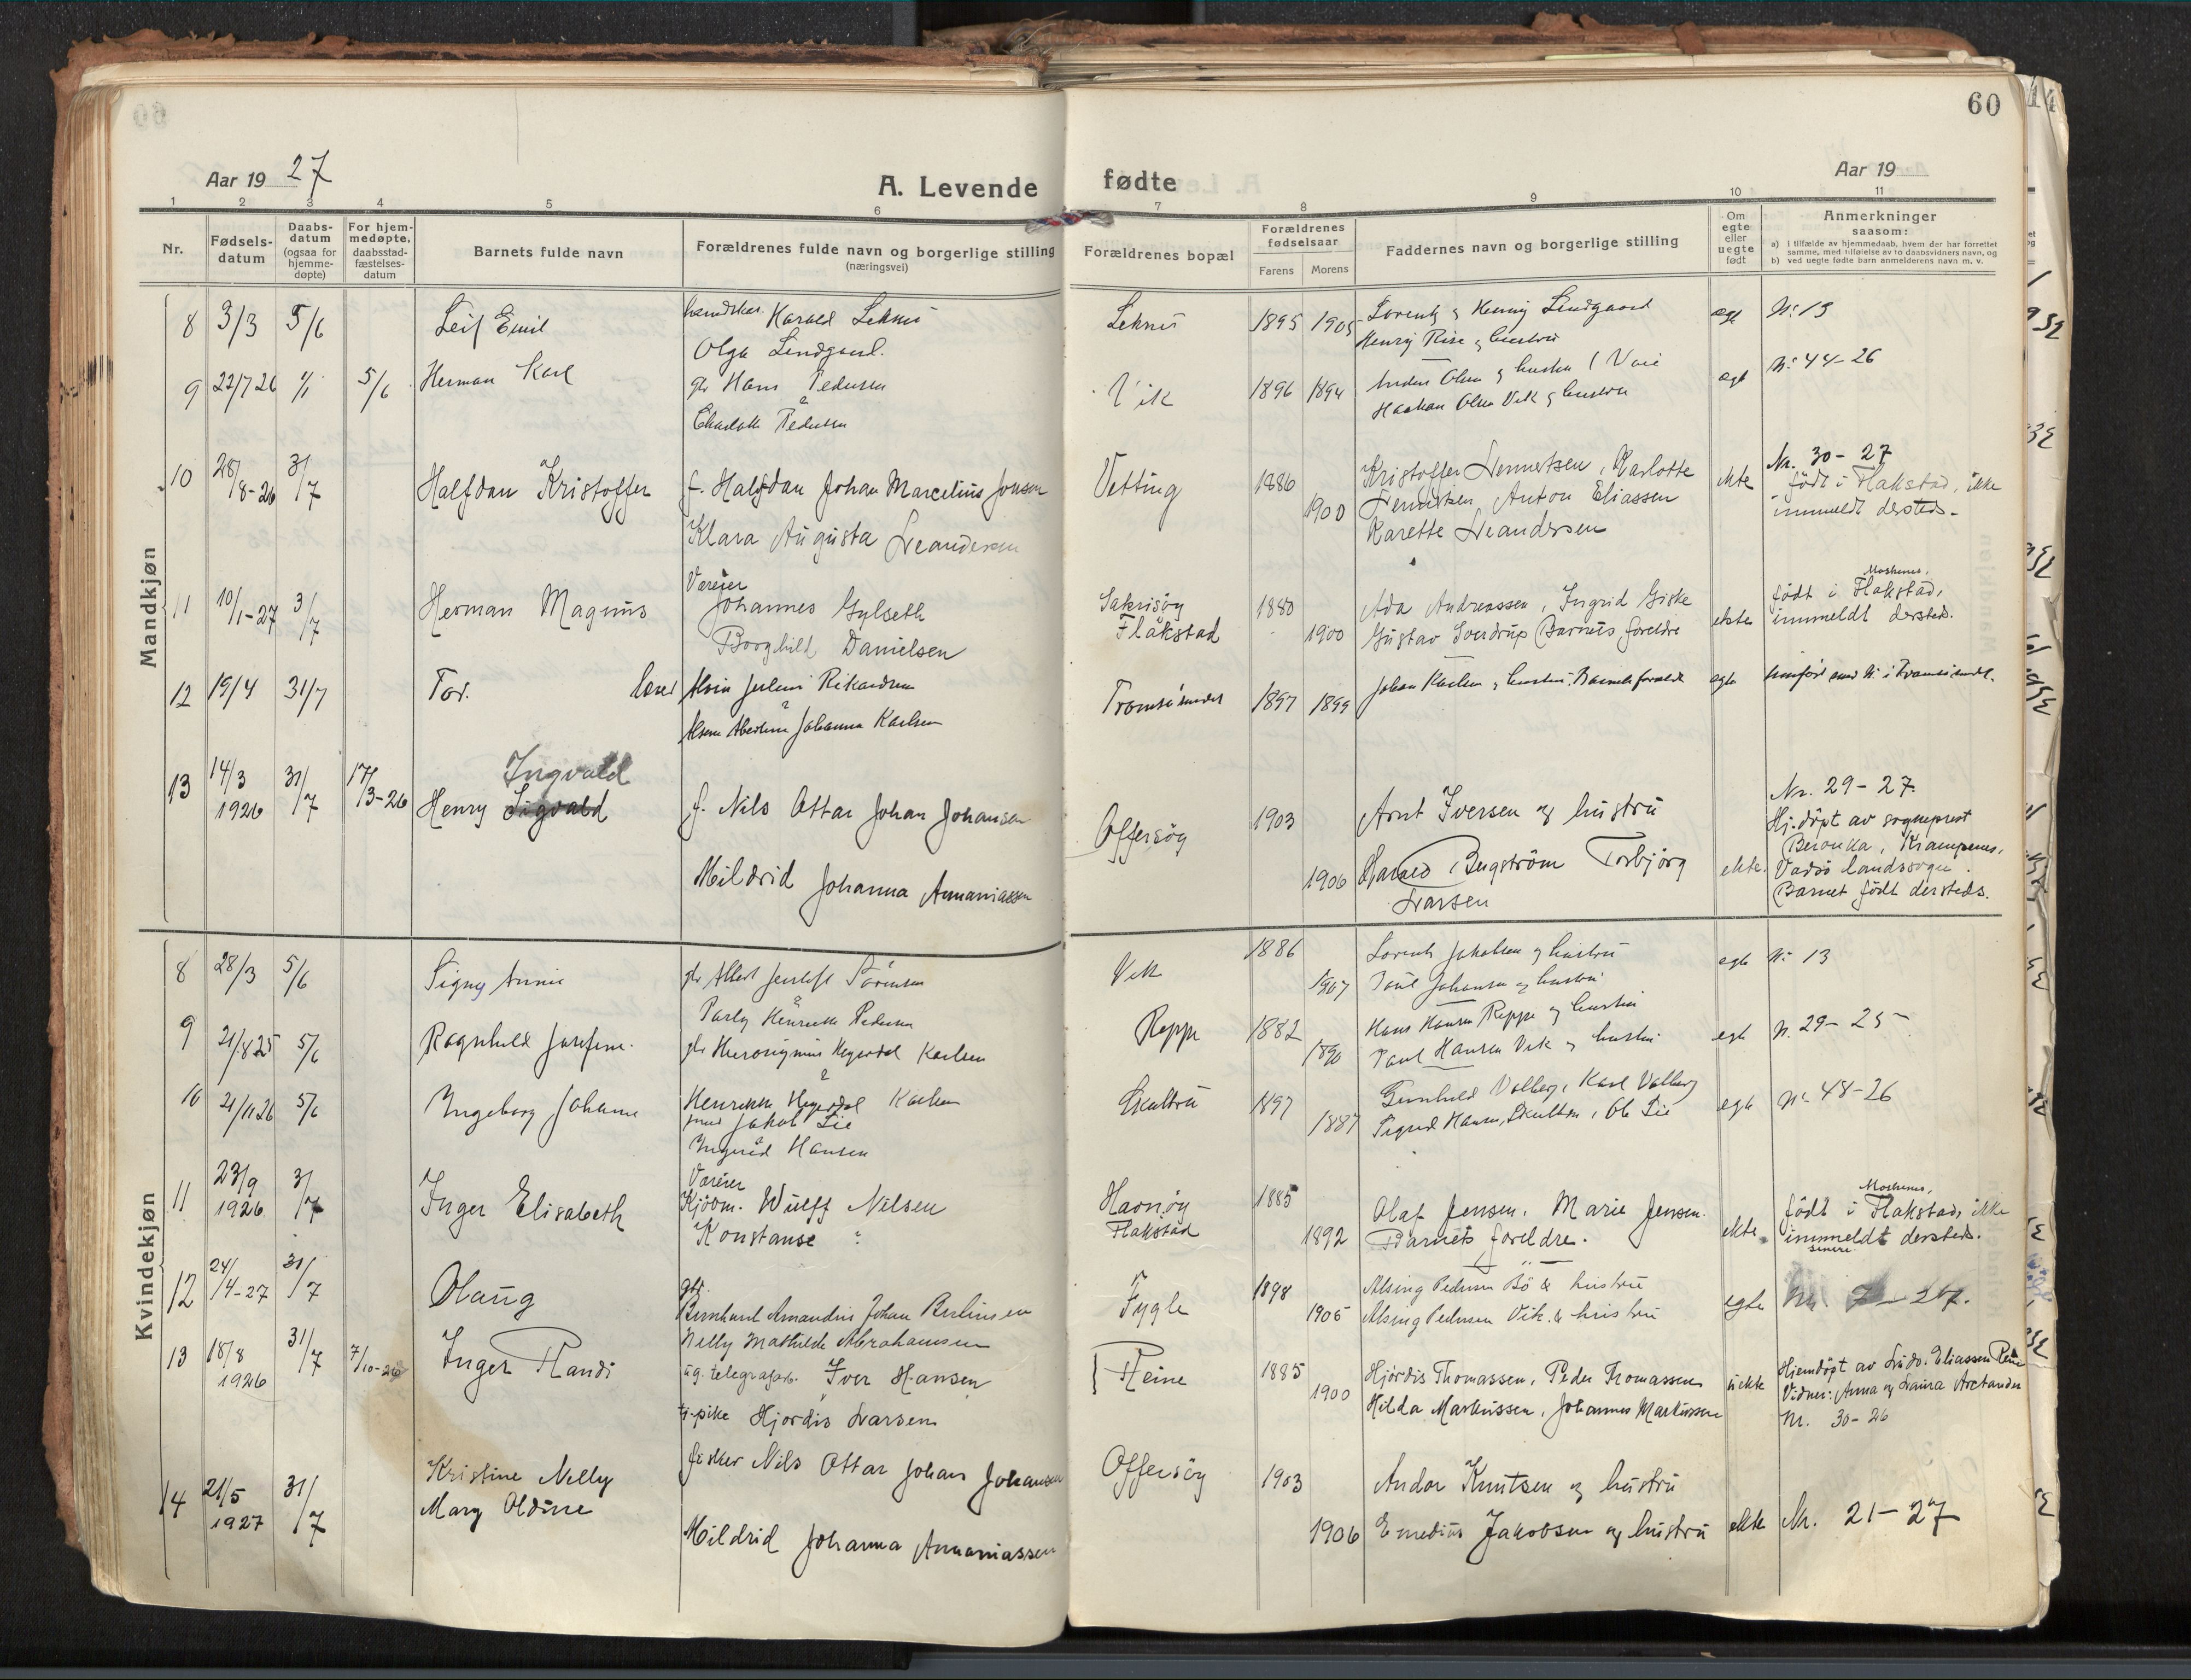 60
Aar 19 27
A. Levende
fødte
Aar 19
1 2 3 4 5 6 7 8 9 10 11
Nr.
Fødsels-
datum
Daabs-
datum
(ogsaa for
hjemme-
døpte)
For hjem-
medøpte,
daabsstad-
fæstelses-
datum
Barnets fulde navn
Forældrenes fulde navn og borgerlige stilling
(næringsvei)
Forældrenes bopæl
Forældrenes
fødselsaar
Farens Morens
Faddernes navn og borgerlige stilling
Om
egte
eller
uegte
født
Anmerkninger
saasom:
a) i tilfælde av hjemmedaab, hvem der har forrettet
samme, med tilføielse av to daabsvidners navn, og
b) ved uegte fødte barn anmelderens navn m. v.
Mandkjøn
8 3/3 5/6 Leif Emil Harald Leknes
Olga Lindgaard.
Leknes 1895 1905 Lorentz og Henny Lindgaard
Henry Rise og hustru
egt Nr 13
9 22/7 26 1/1 5/6 Herman Karl gbr Hans Pedersen
&
Charlotte Pedersen
Vik 1896 1894 Anders Olsen og hustru
Haakon Olsen Vik og hustru
egt Nr 44-26
10 28/8-26 31/7 Halfdan Kristoffer f. Halfdan Johan Marcelius Jonsen
Klara Augusta Leandersen
Vetting 1886 1900 Kristoffer Lennertsen, Karlotte
Lennertsen, Anton Eliassen
Karette Leandersen
ekte Nr. 30-27
født i Flakstad, ikke
innmeldt dersteds.
11 10/1-27 31/7 Herman Magnus Væreier
Johannes Gylseth
Borghild Danielsen
Sakrisøy
Flakstad
1880 1900 Ada Andreassen, Ingrid Giske
Gustav Sverdrup Barnets foreldre
ekte Moskenes,
født i Flakstad,
innmeldt dersteds.
12 19/4 31/7 Tor. lærer Rikardsen
Johanna Karlsen
Tromsøsundet 1897 1899 Johan Karlsen og hustru. Barnets forældre
egte
13 14/3 1926 31/7 17/3-26 Ingvald
Henry Sigvald
f. Nils Ottar Johan Johansen
Mildrid Johanna Annaniassen
Offersøy 1903 1906 Arnt Iversen og hustru
Harald Bergstrøm Torbjørg
Larsen
ekte. Nr. 29-27.
Hj.døpt av sogneprest
Beronka, Krampenes,
Vadsø landssogn.
Barnet født dersteds.
Kvindekjøn
8 28/3 5/6 Signy Annie gbr Albert Sørensen
&
Henrikke Pedersen
Vik 1886 1907 Lorentz Jakobsen og hustru
Paul Johansen og hustru
egte Nr 13
9 21/8 25 5/6 Ragnhild Josefine. gbr Hieronymus Hegerdal Karlsen
&
Henrikke Hegerdal Karlsen
Reppe 1882 1890 Hans Hansen Reppe og hustru
Paul Hansen Vik og hustru
egte Nr. 29-25
10 21/11 26 5/6 Ingeborg Johanne Jakob Lie
&
Ingrid Hansen
Skulbru 1897 1887 Gunhild Valberg, Karl Valberg
Sigurd Hansen, Skulbru, Ole Lie
egte Nr 48-26
11 23/9 1926 31/7 Inger Elisabeth Væreier
Kjøbm. Wulff Nilsen
Konstanse "
Havnøy
Flakstad
1885 1892 Olaf Jensen, Marie Jensen.
Barnets foreldre.
ekte Moskenes,
født i Flakstad, ikke
innmeldt dersteds.
senere
12 24/4-27 31/7 Olaug gbr.
Bernhard Amandus Johan Berlinsen
Nelly Mathilde Abrahamsen
Fygle 1898 1905 Alsing Pedersen Bø & hustru
Alsing Pedersen Vik. & hustru
egte Nr.
13 18/8 1926 31/7 7/10-26 Inger Randi ug. telegrafarb. Iver Hansen
tj.pike Hjørdis Larsen
Reine 1885 1900 Hjørdis Thomassen, Peder Thomassen
Hilda Markussen, Johannes Markussen
uekte Hjemdøpt av Ludv. Eliassen Reine
Vidner: Anna og Laura Arctander
Nr. 30-26
14 21/5 1927 31/7 Kristine Nelly
Mary Oldine
fisker Nils Ottar Johan Johansen
Mildrid Johanna Annaniassen
Offersøy 1903 1906 Andor Knutsen og hustru
Emedius Jakobsen og hustru
ekte Nr. 21-27